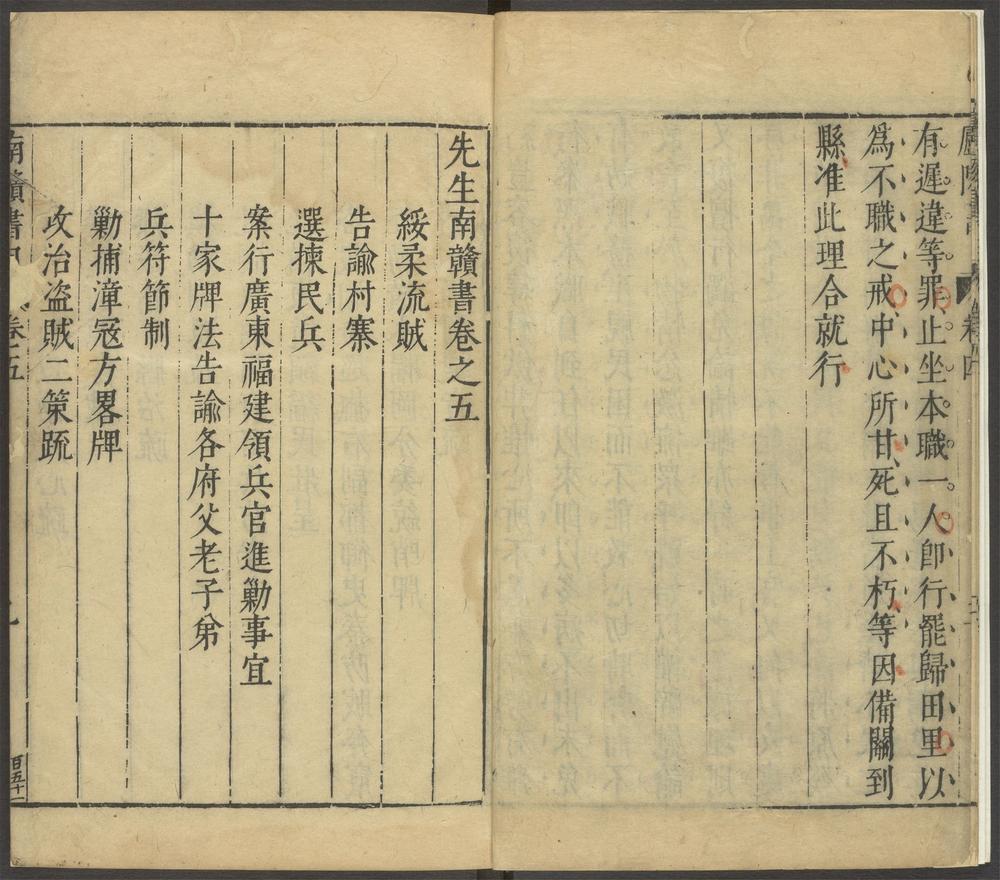 有遲違等罪止坐本職一人卽行罷歸田里以
爲不職之戒中心所甘死且不朽等因備關到
縣准此理合就行
先生南贛書卷之五
綏柔流賊
告諭村寨
選揀民兵
案行廣東福建領兵官進勦事宜
十家牌法告諭各府父老子弟
兵符節制
勦捕漳寇方畧牌
攻治盜賊二策疏
南贛書 卷五
百五十一